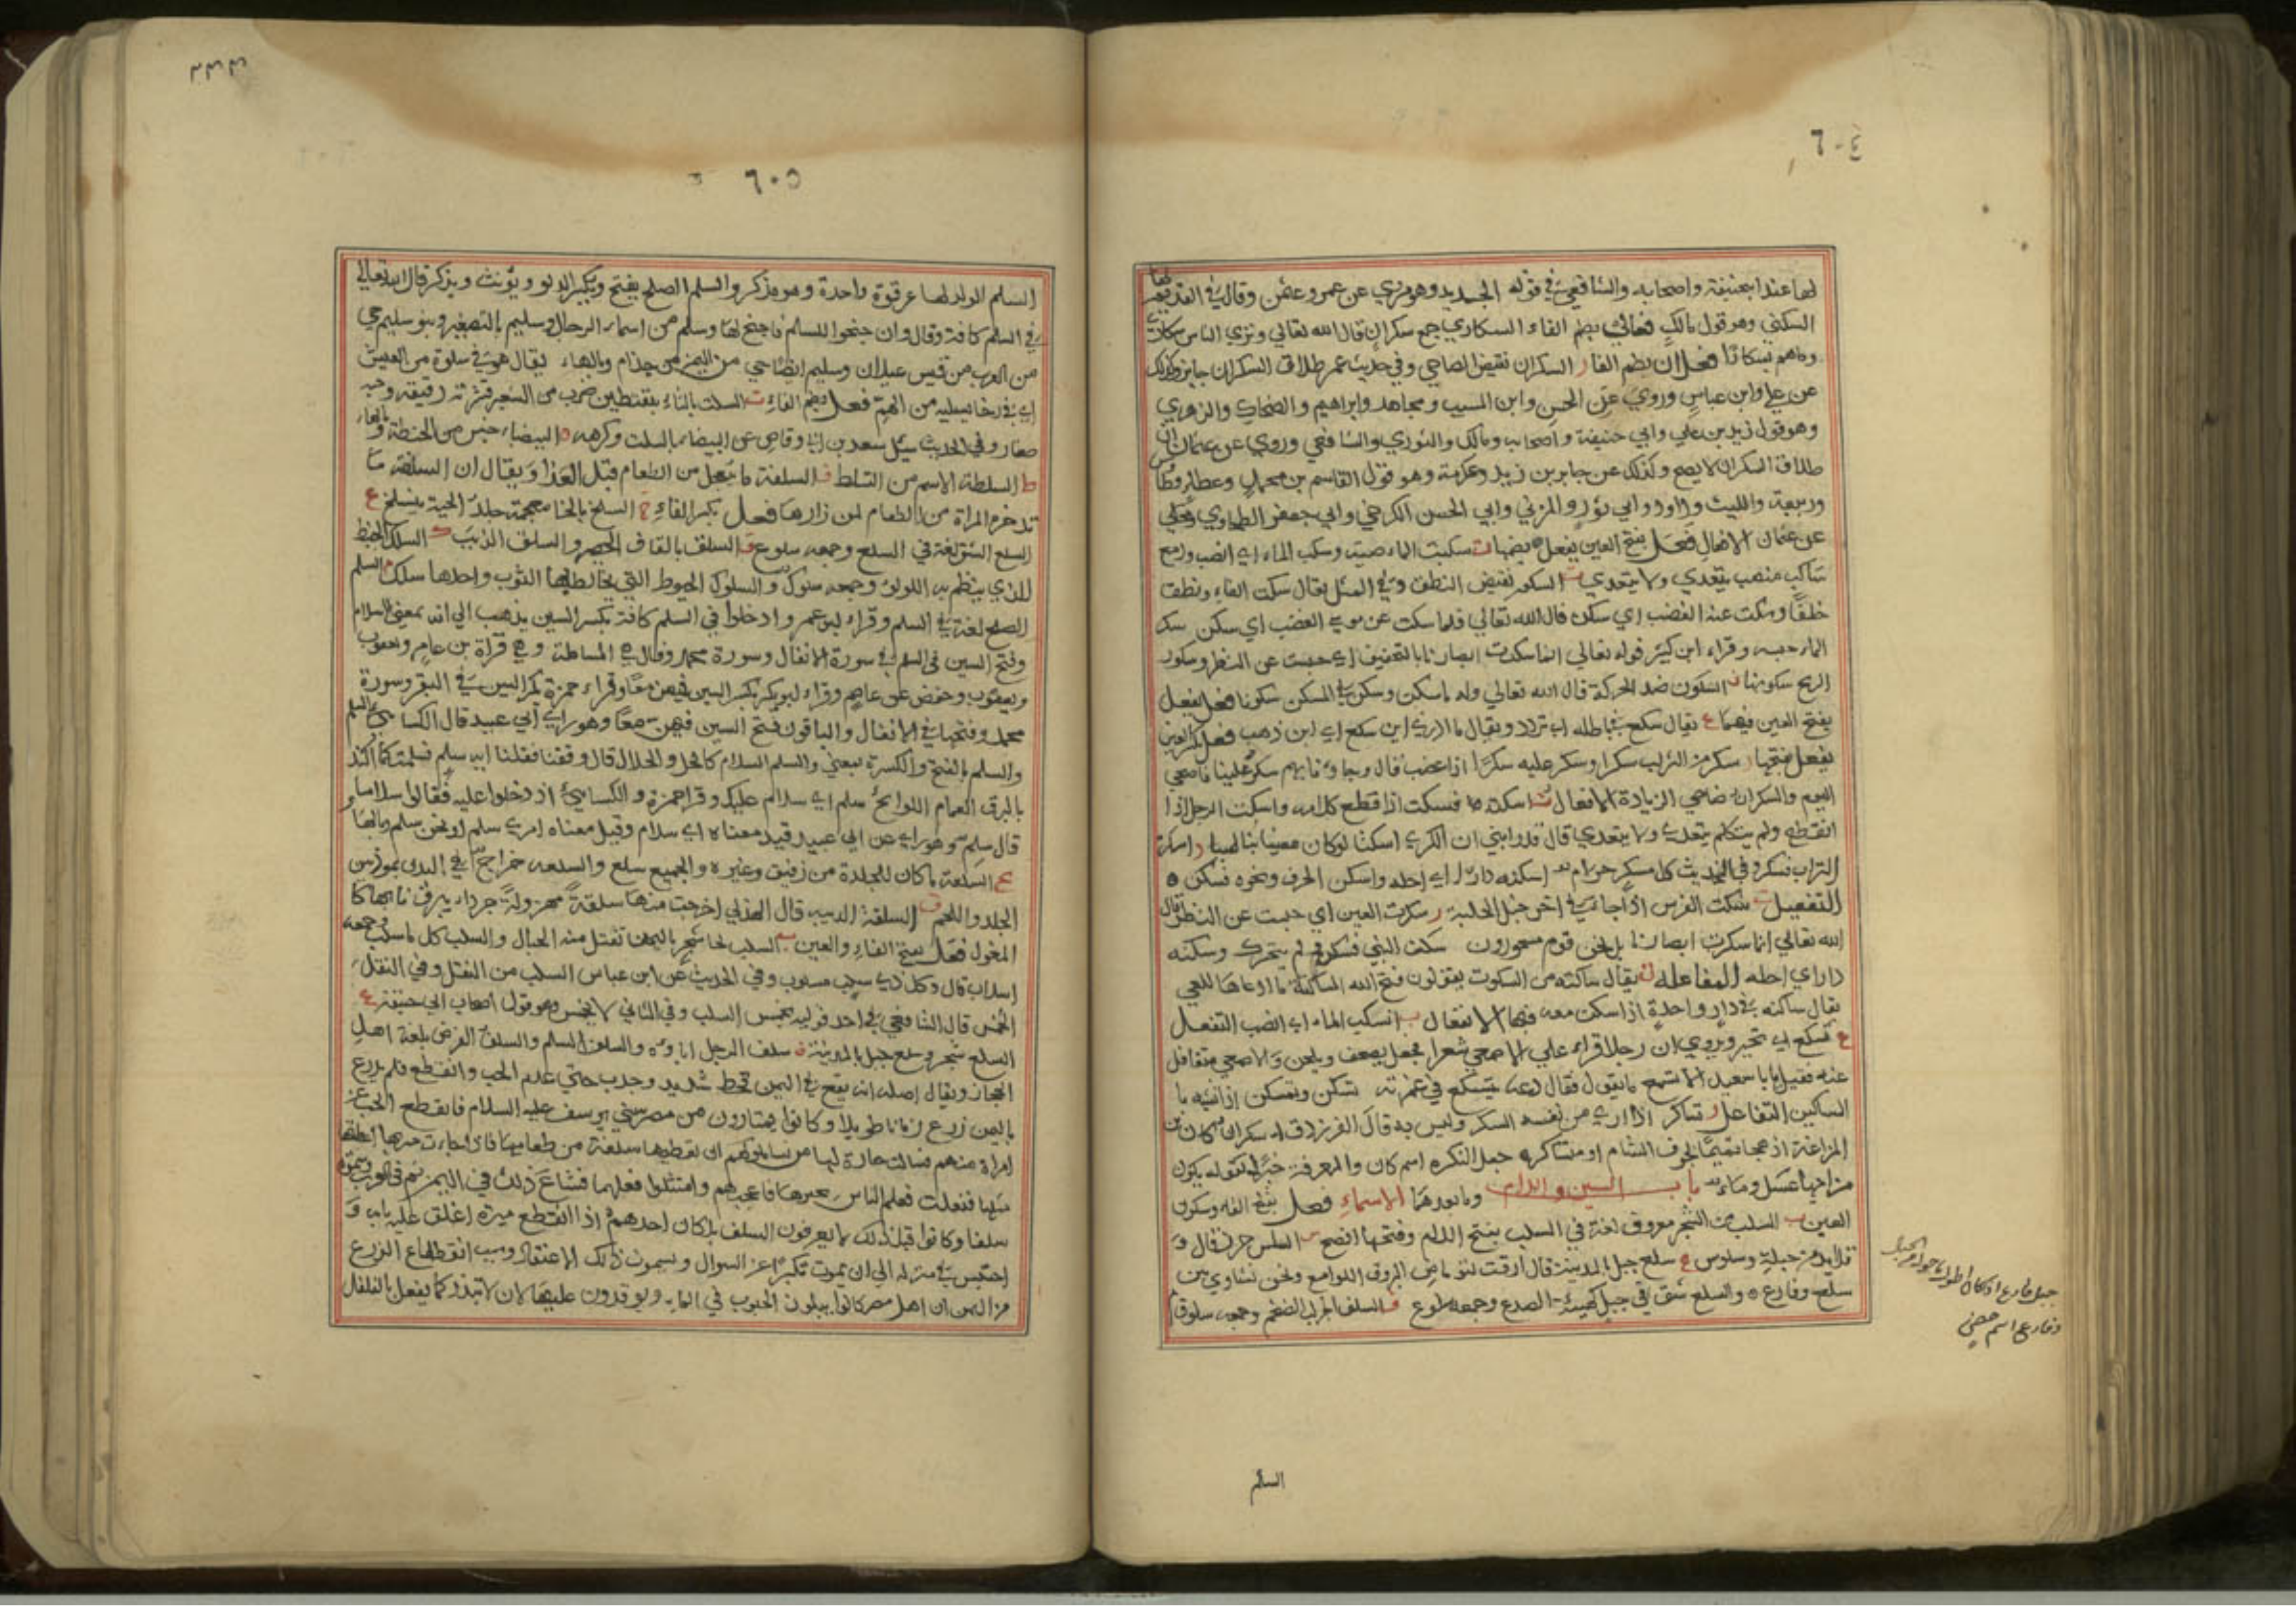 ٦٠٤
لها عند ابي حنيفة واصحابه والشافعي في قوله الجديد وهو مروي عن عمر وعثمن وقال في القديم لها
السكني وهو قول مالك فعالى بضم الفاء السكاري جمع سكران قال الله تعالي وتري الناس سكارى
وماهم بسكارى فعلان بضم الفا ر السكران نقيض الصاحي وفي حديث عمر طلاق السكران جايز وكذلك
عن علي وابن عباس وروي عن الحسن وابن المسيب ومجاهد وابراهيم والضحاك والزهري
وهو قول زيد بن علي وابي حنيفة واصحابه ومالك والثوري والشافعي وروي عن عثمان ان
طلاق السكران لا يصح وكذلك عن جابر بن زيد وعكرمة وهو قول القاسم بن محمد وعطا وطا
وربيعة والليث وداود وابي ثور والمزني وابي الحسن الكرخي وابي جعفر الطحاوي
عن عثمان الافعال فعل بفتح العين يفعل بضمها سكبت الماء صببته وسكب الماء اي انصب ودمع
ساكب منصب يتعدي ولا يتعدي ت السكوت نقيض النطق وفي المثل يقال سكت الفا ونطق
خلفا وسكت عنه الغضب اي سكن قال الله تعالي فلما سكت عن موسى الغضب اي سكن سكر
الماء حبسه وقراء ابن كثير قوله تعالي انما سكرت ابصارنا بالتخفيف اي حبست عن النظر وسكور
الريح سكونها ن السكون ضد الحركة قال الله تعالي وله ما سكن وسكن في المسكن سكونا فعل يفعل
بفتح العين فيهما ع يقال سكع في باطله اي تردد ويقال ما ادري اين سكع اي اين ذهب فعل بكسر العين
يفعل بفتحها ر سكر من الشراب سكرا وسكر عليه سكرا اذا غضب قال وجاؤنا بهم سكر علينا فاضحي
اليوم والسكران ضاحي الزيادة الافعال ت اسكته فسكت اذا قطع كلامه واسكت الرجل اذا
انقطع ولم يتكلم يتعدي ولا يتعدي قال قد رابني ان الكري اسكتا لو كان معنيا بنا لهيتا ر اسكره
الشراب فسكر وفي الحديث كل مسكر حرام ن اسكنه دارا اي احله واسكن الحرف ونحوه فسكن
التفعيل ت سكت الفرس اذا جاء في اخر خيل الحلبة ر سكرت العين اي حبست عن النظر قال
الله تعالي انما سكرت ابصارنا بل نحن قوم مسحورون سكنت الشي فسكن لم يتحرك وسكنه
دارا اي احله المفاعلة ت يقال ساكته من السكوت يقولون فتح الله المساكتة
يقال ساكنه في دار واحدة اذا سكن معه فيها الانفعال ب انسكب الماء اي انصب التفعل
ع تسكع اي تحير ويروي ان رجلا قراء علي الاصمعي شعرا فجعل يصحف ويلحن والاصمعي متغافل
عنه فقيل يا با سعيد الا تسمع ما يقول فقال دعه يتسكع في غمرته تسكن وتمسكن اذا تشبه با
لمساكين التفاعل ر تساكر اذا اري من نفسه السكر وليس به قال الفرزدق اسكران كان بن
المراغة اذ هجا تميما بجوف الشام ام متساكر جعل النكرة اسم كان والمعرفة خبرا كقوله يكون
مزاجها عسل وماء باب السين واللام وما بعدها الاسماء فعل بفتح الفا وسكون
العين ب السلب من الشجر معروف لغة في السلب بفتح اللام وفتحها افصح س السلس خرز قال و
قلايد من حبلة وسلوس ع سلع جبل بالمدينة قال ارقت لتوماض البروق اللوامع ونحن نشاوي بين
سلع وفارع والسلع شق في جبل كهيئة الصدع وجمعه سلوع ف السلف الجراب الضخم وجمعه سلوف
فارع
وفارع اسم حصن
السلم
٢٣٣
٦٠٥
السلم الدلو لها عرقوة واحدة وهو مذكر والسلم الصلح يفتح ويكسر ويؤنث ويذكر قال الله تعالي
في السلم كافة وقال وان جنحوا للسلم فاجنح لها وسلم من اسماء الرجال وسليم بالتصغير وبنو سليم حي
من العرب من قيس عيلان وسليم ايضا حي من اليمن من جذام وبالهاء يقال هو في سلوة من العيش
اي في رخا يسليه من الهم فعل بضم الفاء ت السلت بالتاء بنقطتين ضرب من الشعير قشرته رقيقة وحبه
صغار وفي الحديث سئل سعد بن ابي وقاص عن البيضاء بالسلت وكرهه البيضاء جنس من الحنطة وبالهاء
ط السلطة الاسم من التسلط ف السلفة ما يعجل من الطعام قبل الغدا ويقال ان السلفة ما
تدخره المراة من الطعام لمن زارها فعل بكسر الفاء خ السلخ بالخا معجمة جلد الحية ينسلخ ع
السلع الشق لغة في السلع وجمعه سلوع ق السلق بالقاف الحصر والسلق الذيب ك السلك الخيط
الذي ينظم به اللولؤ وجمعه سلوك والسلوك الخيوط التي يخاط بها الثوب واحدها سلك م السلم
الصلح لغة في السلم وقراء ابو عمر وادخلوا في السلم كافة بكسر السين يذهب الي انه بمعنى الاسلام
وفتح السين في السلم في سورة الانفال وسورة محمد وقال هي المسالمة وهي قراة بن عامر ويعقوب
ويعقوب وحفص عن عاصم وقراء ابو بكر بكسر السين فيهن معا وقراء حمزة بكسر السين في البقر وسورة
محمد وفتحها في الانفال والباقون بفتح السين فيهن معا وهو راي ابي عبيد قال الكسائي السلم
والسلم بالفتح والكسرة بمعني والسلم السلام كالحل والحلال قال وقفنا فقلنا ايه سلم فسلمت كما اكتل
بالبرق الغمام اللوايح سلم اي سلام عليك وقرا حمزة والكسائي اذ دخلوا عليه فقالوا سلاما
قال سلم وهو راي عن ابي عبيد وقيل معناه اي سلام وقيل معناه امري سلم او نحن سلم وبالهاء
ع السلعة ما كان للتجارة من رقيق وغيره والجميع سلع والسلعة خراج في البدن يمور بين
الجلد واللحم ق السلقة الذيبة قال الهذلي اخرجت منها سلقة مهزولة جرداء يبرق نابها كا
المغول فعل بفتح الفاء والعين ب السلب لحا شجر باليمن تفتل منه الحبال والسلب كل ما سلب وجمعه
اسلاب قال وكل ذي سلب مسلوب وفي الحديث عن ابن عباس السلب من النفل وفي النفل
الخمس قال الشافعي في احد قوليه يخمس السلب وفي الثاني لا يخمس وهو قول اصحاب ابي حنيفة ع
السلع شجر وسلع جبل بالمدينة ف سلف الرجل اباؤه والسلف السلم والسلف القرض بلغة اهل
الحجاز ويقال اصله انه يقع في اليمن قحط شديد وجدب حتي عدم الحب وانقطع فلم يزرع
باليمن زرع زمانا طويلا وكانوا يمتارون من مصر سني يوسف عليه السلام فانقطع الحب عن
امراة منهم فسالت جارة لها ان تعطيها سلفة من طعامها فاذا جاءت عيرها اعطتها
مثلها ففعلت فعلم الناس بخبرها فاعجبهم وامتثلوا فعلهما فشاع ذلك في اليمن ثم في العرب وسموه
سلفا وكانوا قبل ذلك لا يعرفون السلف بل كان احدهم اذا انقطع ميره اغلق عليه بابه و
احتبس في منزله الي ان يموت تكبرا عن السوال ويسمون ذلك الاعتفاد وسبب انقطاع الزرع
من اليمن ان اهل مصر كانوا يبلون الحبوب في الماء ويوقدون عليها لان لا تبذر كما يفعل بالفلفل